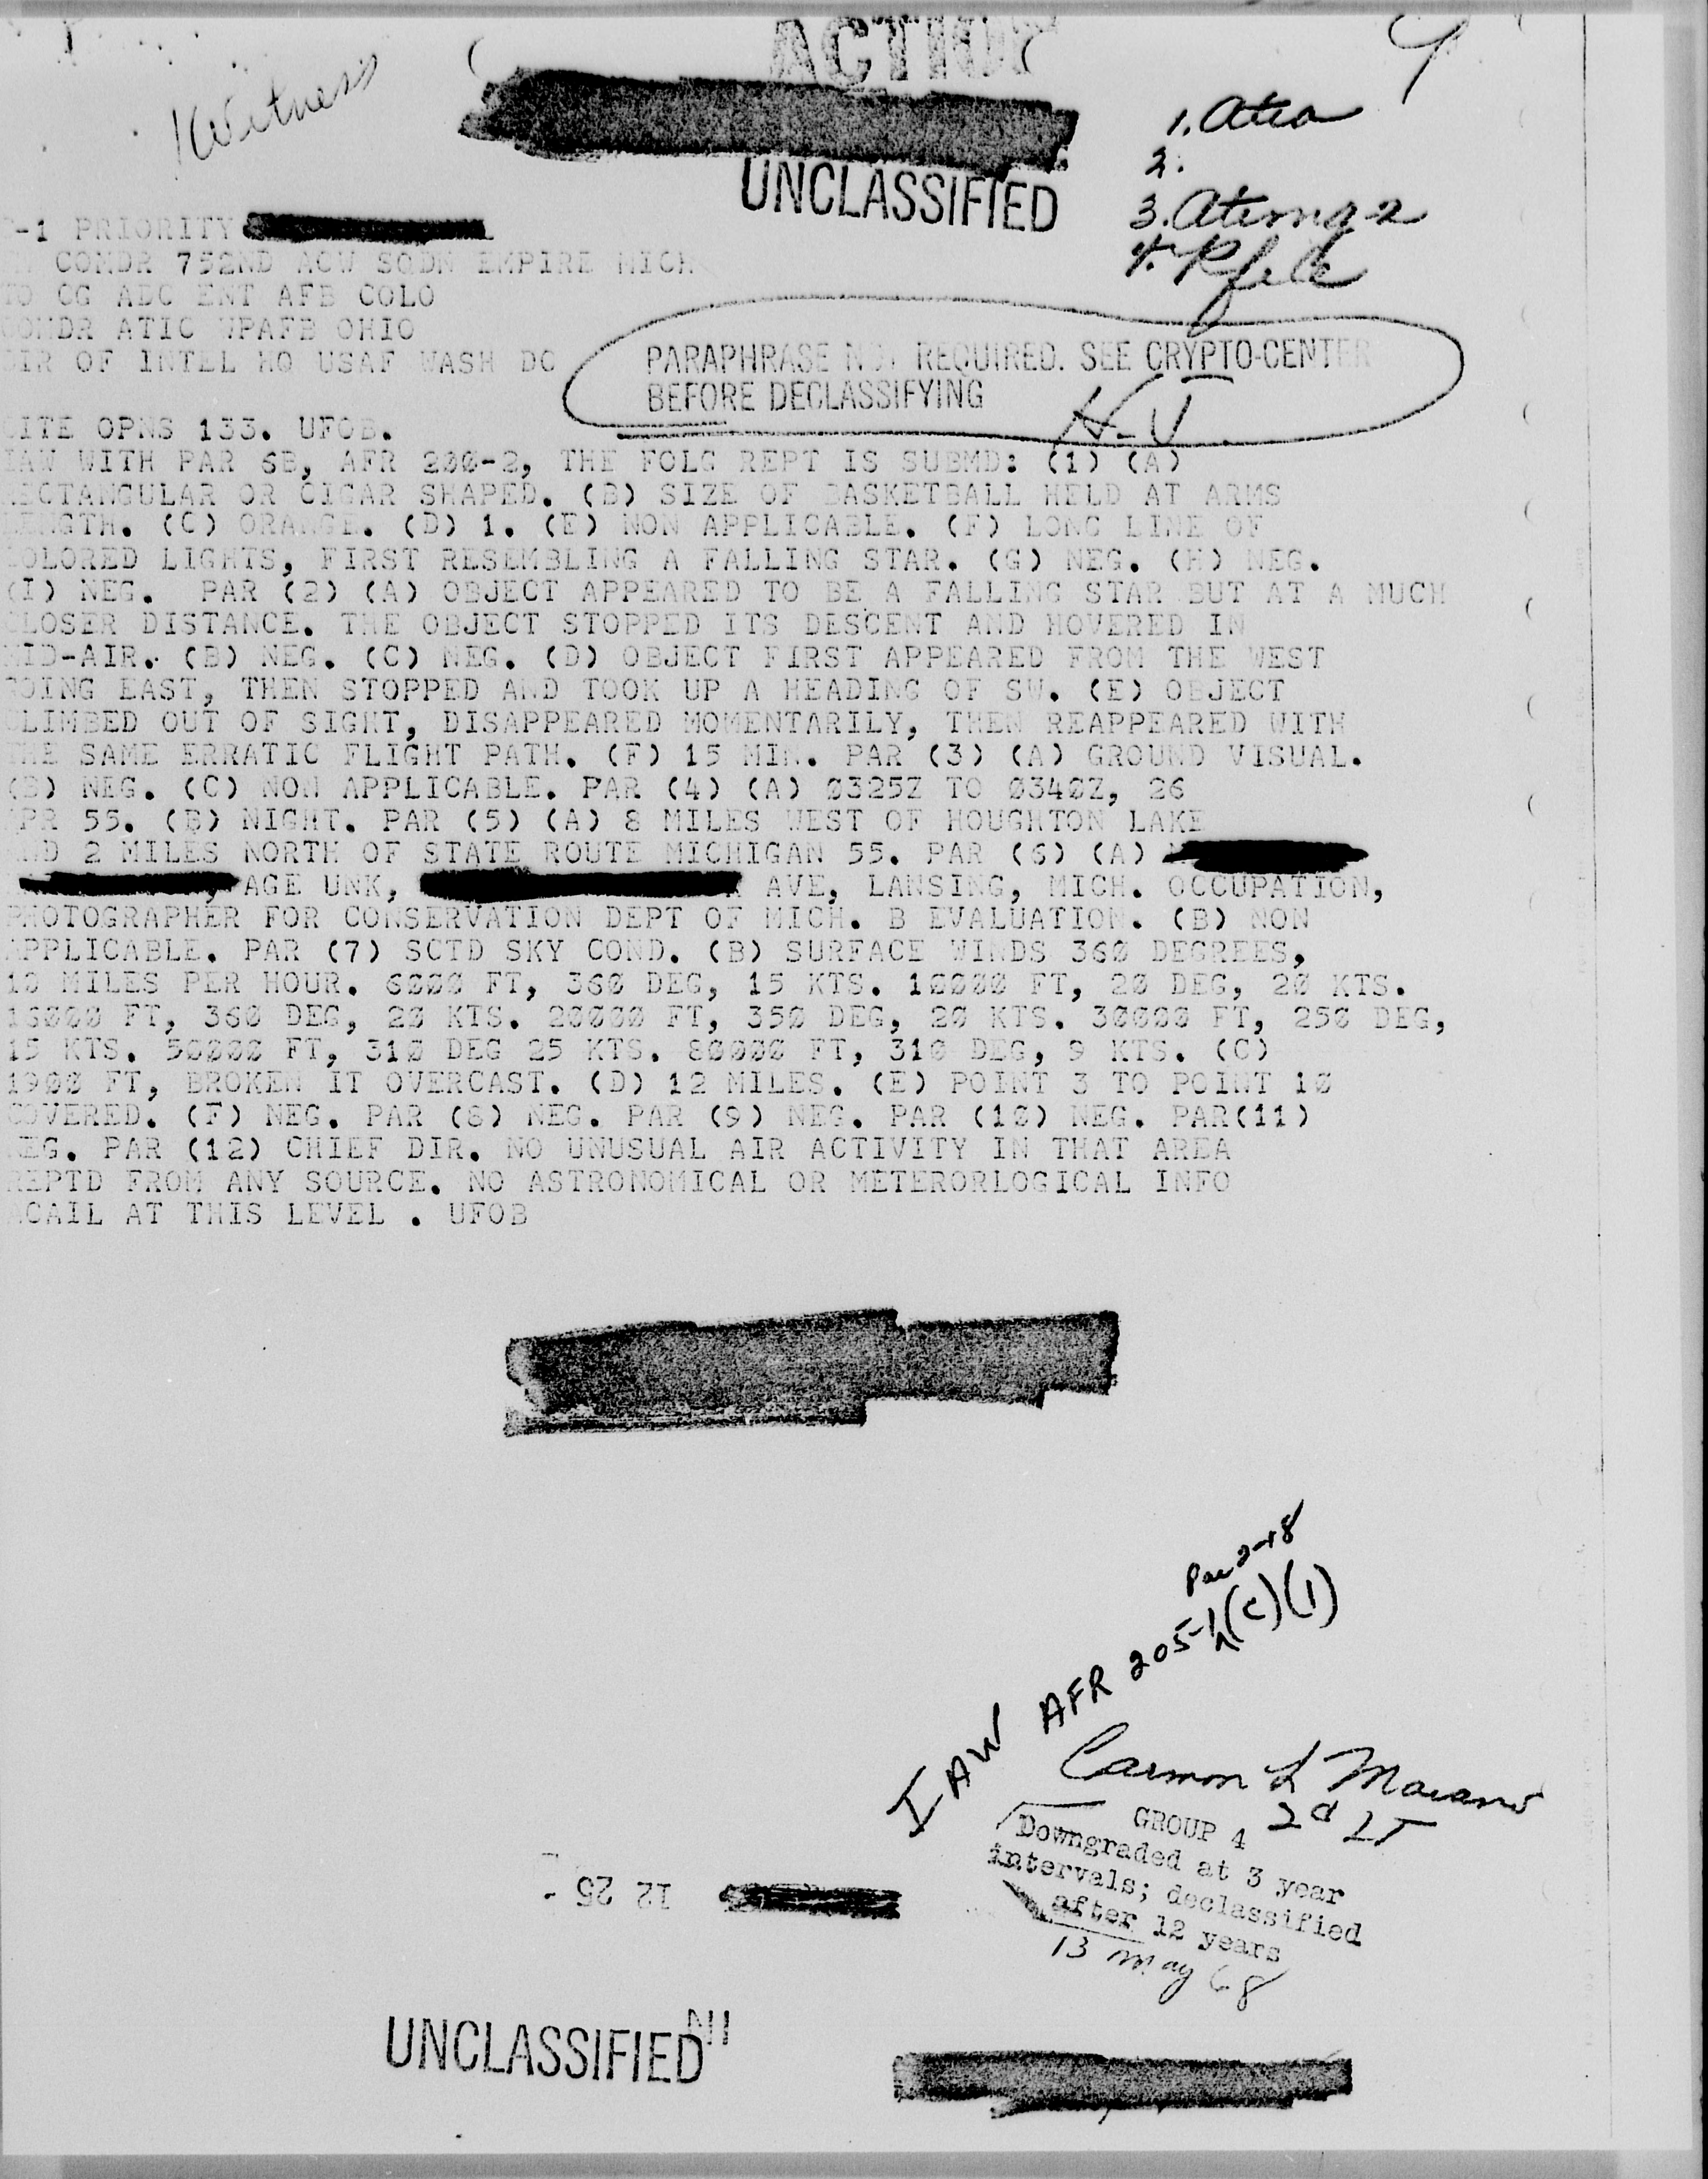 ACTION
Witness
UNCLASSIFIED
1. Atia
2.
3.
4.
-1 PRIORITY
COMDR 752ND ACW SQDN EMPIRE MICH
TO CG ADC ENT AFB COLO
COMDR ATIC WPAFB OHIO
DIR OF INTEL HQ USAF WASH DC
PARAPHRASE NOT REQUIRED. SEE CRYPTO-CENTER
BEFORE DECLASSIFYING
CITE OPNS 133. UFOB.
IAW WITH PAR 6B, AFR 200-2, THE FOLG REPT IS SUBMD: (1) (A)
RECTANGULAR OR CIGAR SHAPED. (B) SIZE OF BASKETBALL HELD AT ARMS
LENGTH. (C) ORANGE. (D) 1. (E) NON APPLICABLE. (F) LONG LINE OF
COLORED LIGHTS, FIRST RESEMBLING A FALLING STAR. (G) NEG. (H) NEG.
(I) NEG. PAR (2) (A) OBJECT APPEARED TO BE A FALLING STAR BUT AT A MUCH
CLOSER DISTANCE. THE OBJECT STOPPED ITS DESCENT AND HOVERED IN
MID-AIR. (B) NEG. (C) NEG. (D) OBJECT FIRST APPEARED FROM THE WEST
GOING EAST, THEN STOPPED AND TOOK UP A HEADING OF SW. (E) OBJECT
CLIMBED OUT OF SIGHT, DISAPPEARED MOMENTARILY, THEN REAPPEARED WITH
THE SAME ERRATIC FLIGHT PATH. (F) 15 MIN. PAR (3) (A) GROUND VISUAL.
(B) NEG. (C) NON APPLICABLE. PAR (4) (A) Ø325Z TO Ø34ØZ, 26
APR 55. (B) NIGHT. PAR (5) (A) 8 MILES WEST OF HOUGHTON LAKE
AND 2 MILES NORTH OF STATE ROUTE MICHIGAN 55. PAR (6) (A)
, AGE UNK, AVE, LANSING, MICH. OCCUPATION,
PHOTOGRAPHER FOR CONSERVATION DEPT OF MICH. B EVALUATION. (B) NON
APPLICABLE. PAR (7) SCTD SKY COND. (B) SURFACE WINDS 36Ø DEGREES,
1Ø MILES PER HOUR. 6ØØØ FT, 36Ø DEG, 15 KTS. 1ØØØØ FT, 2Ø DEG, 2Ø KTS.
16ØØØ FT, 36Ø DEG, 2Ø KTS. 2ØØØØ FT, 35Ø DEG, 2Ø KTS. 3ØØØØ FT, 25Ø DEG,
15 KTS. 5ØØØØ FT, 31Ø DEG 25 KTS. 8ØØØØ FT, 31Ø DEG, 9 KTS. (C)
19ØØ FT, BROKEN IT OVERCAST. (D) 12 MILES. (E) POINT 3 TO POINT 1Ø
COVERED. (F) NEG. PAR (8) NEG. PAR (9) NEG. PAR (1Ø) NEG. PAR(11)
NEG. PAR (12) CHIEF DIR. NO UNUSUAL AIR ACTIVITY IN THAT AREA
REPTD FROM ANY SOURCE. NO ASTRONOMICAL OR METERORLOGICAL INFO
ACAIL AT THIS LEVEL . UFOB
Par 2-18
IAW AFR 205-1 (C)(1)
Carmon L Marano
2d LT
GROUP 4
Downgraded at 3 year
intervals; declassified
after 12 years
13 May 68
12 25
UNCLASSIFIED